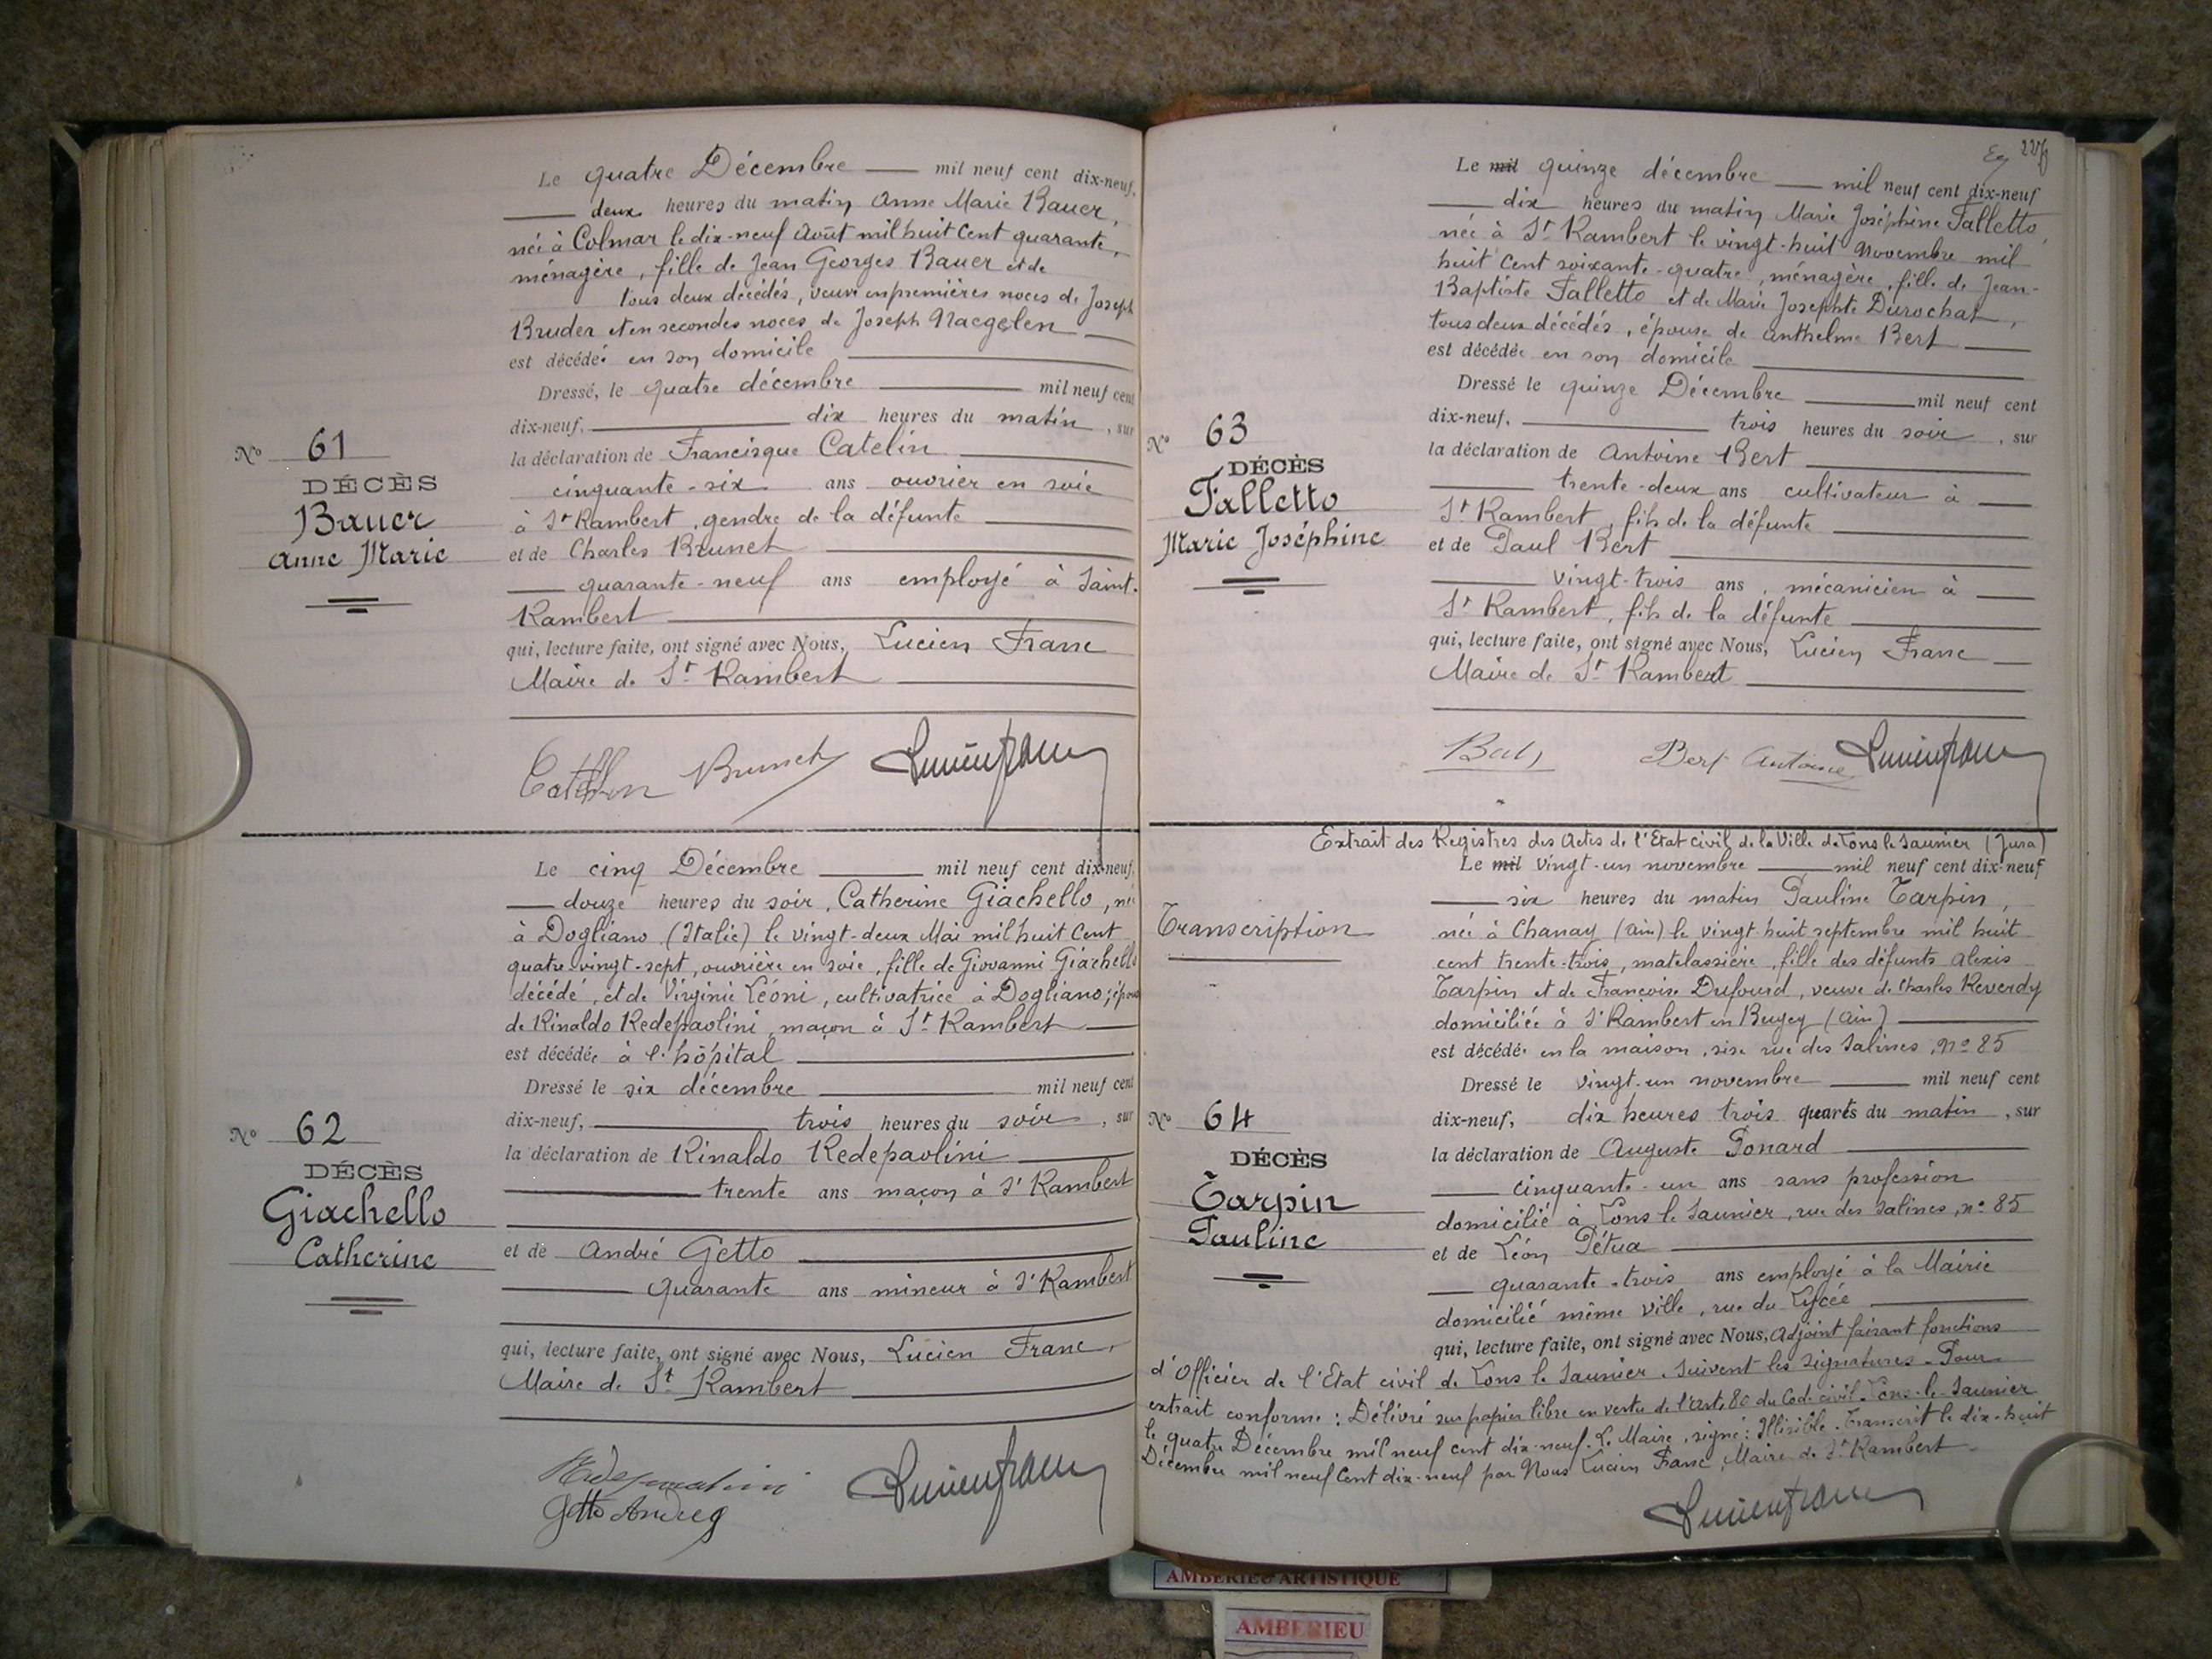 Le quatre Décembre mil neuf cent dix-neuf,
deux heures du matin Anne Marie Bauer,
née à Colmar le dix-neuf Août mil huit cent quarante,
ménagère, fille de Jean Georges Bauer et de
tous deux décédés, veuve en premières noces de Joseph
Bruder et en secondes noces de Joseph Naegelen
est décédée en son domicile
Dressé, le quatre décembre mil neuf cent
dix-neuf, dix heures du matin, sur
la déclaration de Francisque Catelin
cinquante-six ans ouvrier en soie
à St Rambert, gendre de la défunte
et de Charles Brunet
quarante-neuf ans employé à Saint-
Rambert
qui, lecture faite, ont signé avec Nous, Lucien Franc
Maire de St Rambert
No 61
DÉCÈS
Bauer
Anne Marie
Brunet
Le cinq Décembre mil neuf cent dix-neuf,
douze heures du soir, Catherine Giachello, née
à Dogliano (Italie) le vingt-deux Mai mil huit cent
quatre-vingt-sept, ouvrière en soie, fille de Giovanni Giachello
décédé, et de Virginie Léoni, cultivatrice à Dogliano; épouse
de Rinaldo Redepaolini, maçon à St Rambert
est décédée à l'hôpital
Dressé le six décembre mil neuf cent
dix-neuf, trois heures du soir, sur
la déclaration de Rinaldo Redepaolini
trente ans maçon à St Rambert
et de André Getto
quarante ans mineur à St Rambert
qui, lecture faite, ont signé avec Nous, Lucien Franc,
Maire de St Rambert
No 62
DÉCÈS
Giachello
Catherine
Getto
Le mil quinze décembre mil neuf cent dix-neuf
dix heures du matin Marie Joséphine Falletto,
née à St Rambert le vingt-huit Novembre mil
huit cent soixante-quatre, ménagère, fille de Jean-
Baptiste Falletto et de Marie Josephte Durochat,
tous deux décédés, épouse de Anthelme Bert
est décédée en son domicile
Dressé le quinze Décembre mil neuf cent
dix-neuf, trois heures du soir, sur
la déclaration de Antoine Bert
trente-deux ans cultivateur à
St Rambert, fils de la défunte
et de Paul Bert
vingt-trois ans, mécanicien à
St Rambert, fils de la défunte
qui, lecture faite, ont signé avec Nous, Lucien Franc
Maire de St Rambert
No 63
DÉCÈS
Falletto
Marie Joséphine
Bert Antoine
Extrait des Registres des Actes de l'Etat civil de la Ville de Lons le Saunier (Jura)
Le mil vingt-un novembre mil neuf cent dix-neuf
six heures du matin Pauline Tarpin,
née à Chanay (Ain) le vingt huit septembre mil huit
cent trente-trois, matelassière, fille des défunts Alexis
Tarpin et de Françoise Dufourd, veuve de Charles Reverdy
domiciliée à St Rambert en Bugey (Ain)
est décédée en la maison, sise rue des Salines, No 85
Dressé le vingt-un novembre mil neuf cent
dix-neuf, dix heures trois quarts du matin, sur
la déclaration de Auguste Ponard
cinquante-un ans sans profession
domicilié à Lons le Saunier, rue des Salines, no 85
et de Léon Pétua
quarante-trois ans employé à la Mairie
domicilié même ville, rue du Lycée
qui, lecture faite, ont signé avec Nous, Adjoint faisant fonctions
d'Officier de l'Etat civil de Lons le Saunier. Suivent les signatures. Pour
extrait conforme: Délivré sur papier libre en vertu de l'art. 80 du Code civil. Lons-le-Saunier
le quatre Décembre mil neuf cent dix-neuf. Le Maire, signé: Illisible. Transcrit le dix-huit
Décembre mil neuf cent dix-neuf par Nous Lucien Franc, Maire de St Rambert
Transcription
No 64
DÉCÈS
Tarpin
Pauline
AMBERIEU ARTISTIQUE
AMBERIEU